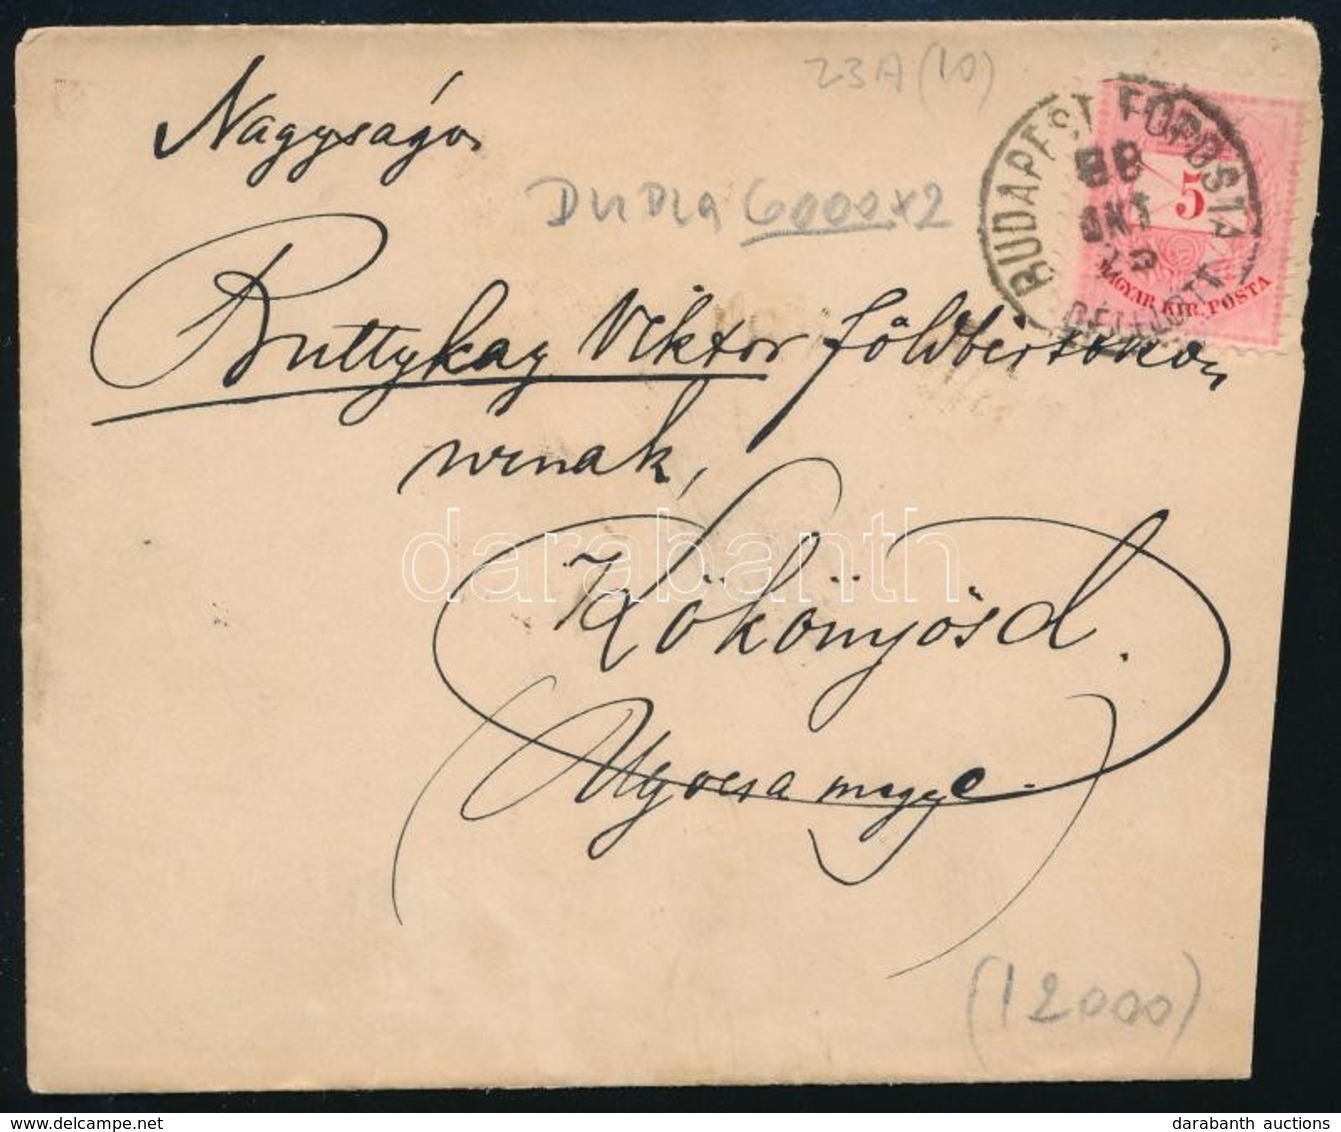 23A (10)
Nagyságos
DUPLA 6000x2
BUDAPEST FŐPOSTA
88
OKT
5
MAGYAR KIR. POSTA
Buttykay Viktor földbirtokos
urnak,
Kökönyösd.
Ugocsa megye.
(12000)
darabanth
darabanth auctions